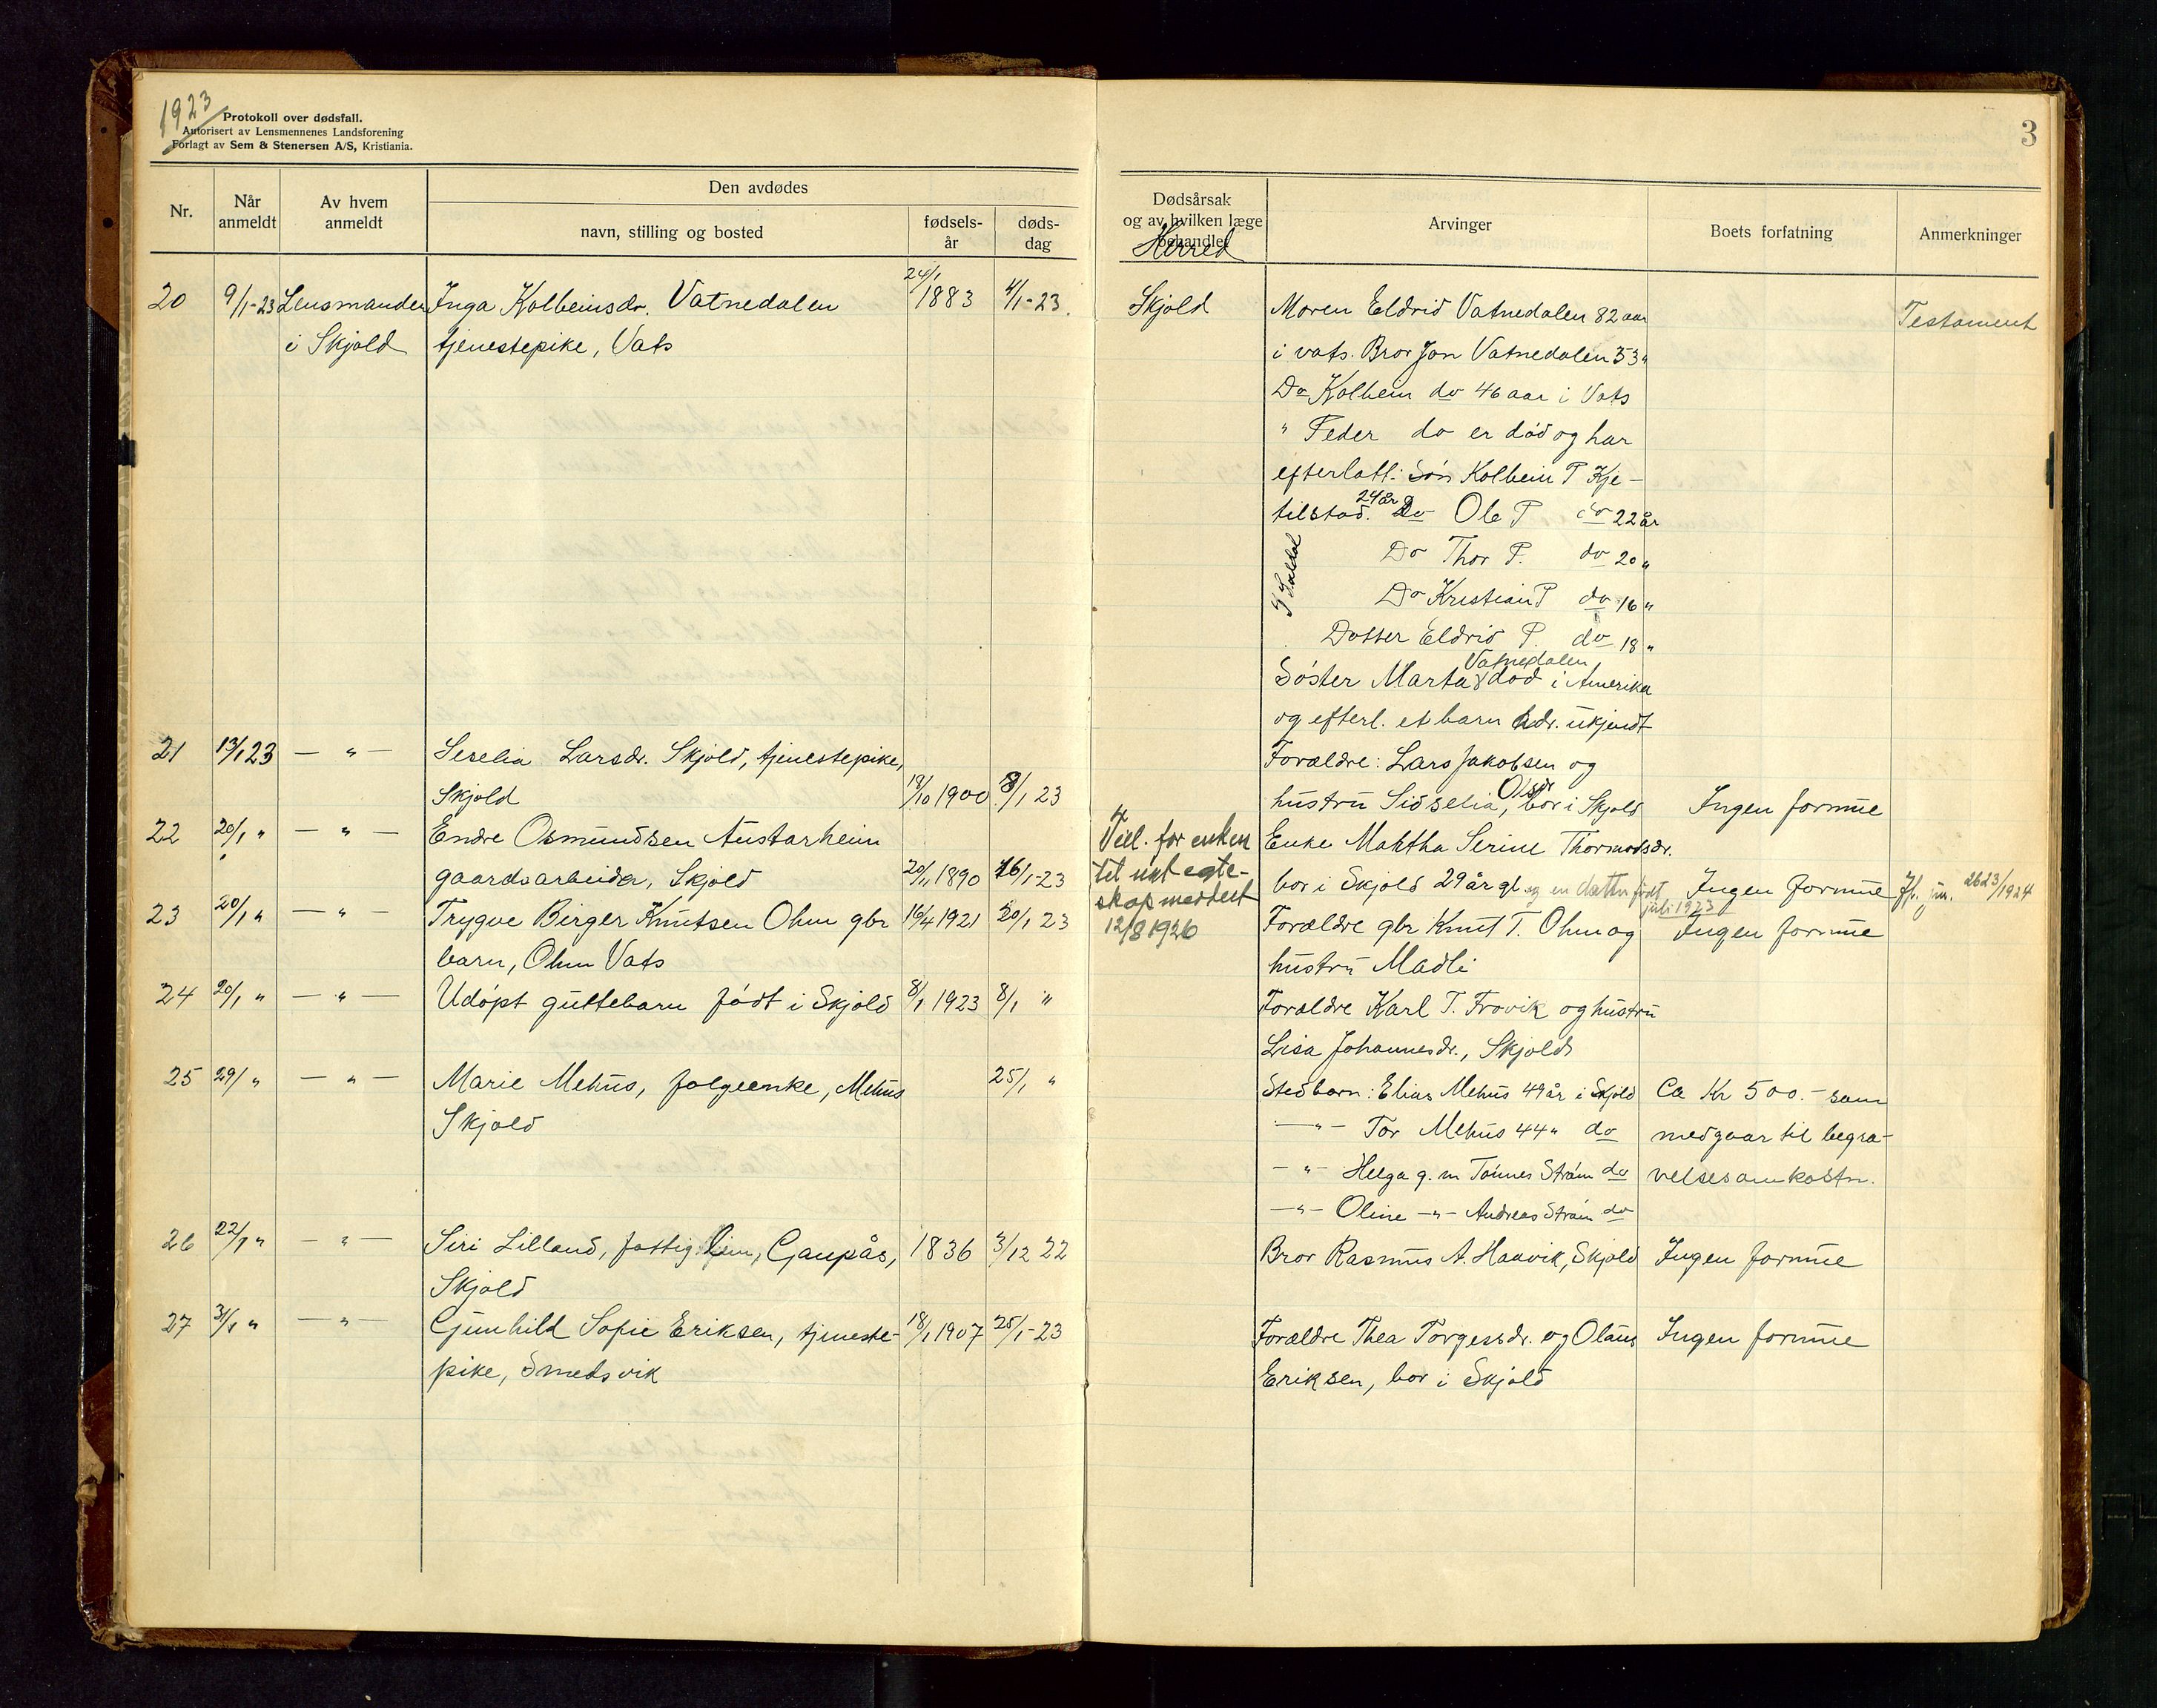 1923
Protokoll over dødsfall.
Autorisert av Lensmennenes Landsforening
Forlagt av Sem & Stenersen A/S, Kristiania.
3
Nr. Når anmeldt Av hvem anmeldt Den avdødes navn, stilling og bosted fødsels-år døds-dag
Dødsårsak og av hvilken læge behandlet Arvinger Boets forfatning Anmerkninger
Herred
20 9/1-23 Lensmanden Inga Kolbeinsdr. Vatnedalen 24/1 1883 4/1-23.
i Skjold tjenestepike, Vats
Skjold Moren Eldrid Vatnedalen 82 aar Testament
i vats. Bror Jon Vatnedalen 53 "
Do Kolbein do 46 aar i Vats
" Peder do er død og har
efterlatt: Søn Kolbein P Kje-
tilstad. 24 år Do Ole P do 22 år
Do Thor P. do 20 "
Do Kristian P do 16 "
I Suldal
Datter Eldrid P. do 18 "
Søster Marta Vatnedalen, død i Amerika
og efterl. et barn adr. ukjendt
21 13/1 23 — " — Seselia Larsdr. Skjold, tjenestepike,
Skjold 19/10 1900 8/1 23
Forældre: Lars Jakobsen og
hustru Sidselia Olsdr, bor i Skjold Ingen formue
22 20/1 " — " — Endre Osmundsen Austarheim
gaardsarbeider, Skjold 20/11 1890 16/1-23
Veil. for enken
til nyt egte-
skap meddelt
12/8 1926
Enke Mahtha Serine Thormodsdr.
bor i Skjold 29 år gl og en datter født juli 1923 Ingen formue Jfr. jur. 2623/1924
23 20/1 " — " — Trygve Birger Knutsen Ohm gbr 16/4 1921 20/1 23
barn, Ohm Vats
Forældre gbr Knut T. Ohm og Ingen formue
hustru Madli
24 20/1 " — " — Udøpt guttebarn født i Skjold 8/1 1923 8/1 "
Forældre Karl T. Frovik og hustru
Lisa Johannesdr., Skjold
25 29/ " — " — Marie Mehus, folgeenke, Mehus 25/1 "
Skjold
Stedbarn: Elias Mehus 49 år i Skjold Ca Kr 500.- som
— " — Tor Mehus 44 " do medgaar til begra-
— " — Helga g. m Tønnes Strøm do velsesomkostn.
— " — Oline — " — Andreas Strøm do
26 22/1 " — " — Siri Lilland, fattig lem, Gaupås, 1836 3/12 22
Skjold
Bror Rasmus A. Haavik, Skjold Ingen formue
27 31/1 " — " — Gunhild Sofie Eriksen, tjeneste- 18/1 1907 25/1-23
pike, Smedsvik
Forældre Thea Torgersdr. og Olaus Ingen formue
Eriksen, bor i Skjold